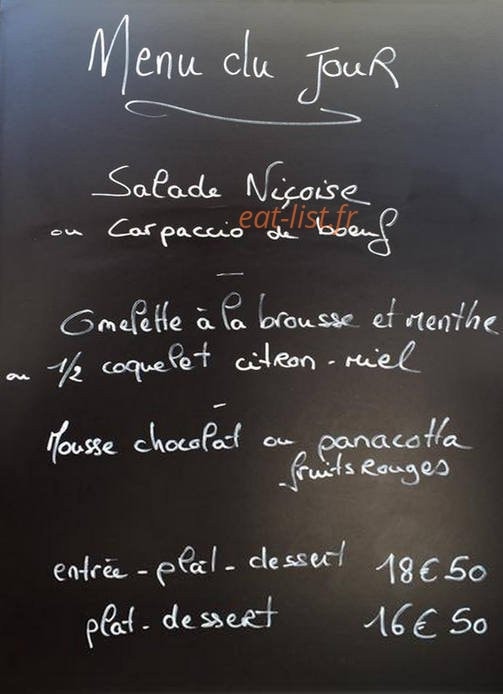 Menu du Jour
Salade Niçoise
eat-list.fr
ou Carpaccio de boeuf
Omelette à la brousse et Menthe
ou 1/2 coquelet citron-miel
Mousse chocolat ou panacotta
fruits Rouges
entrée - plat - dessert 18€50
plat - dessert 16€50